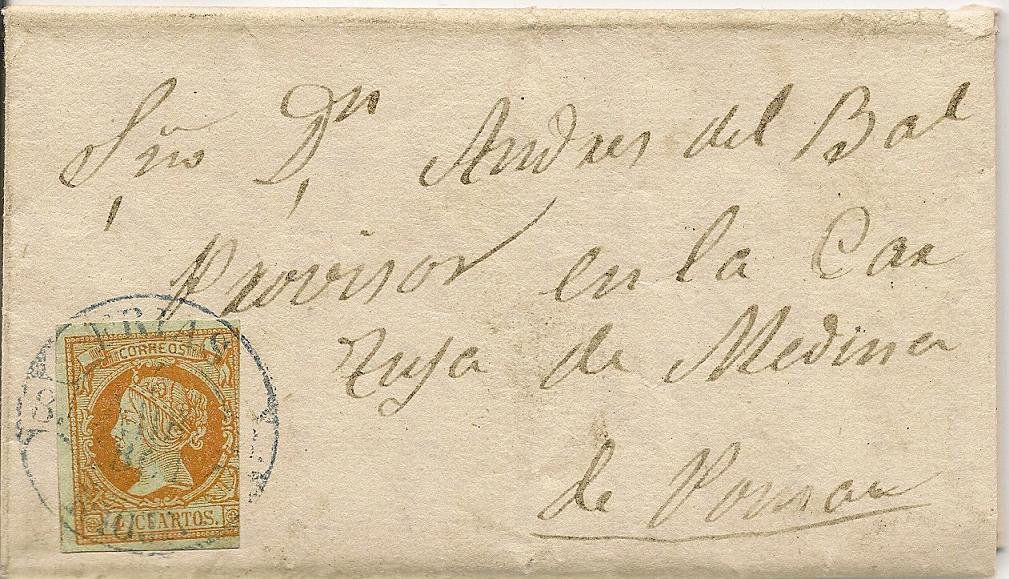 Sño Dn Andres del Bal
Provisor en la Car
tuja de Medina
de Pomar
CORREOS
4 CUARTOS.